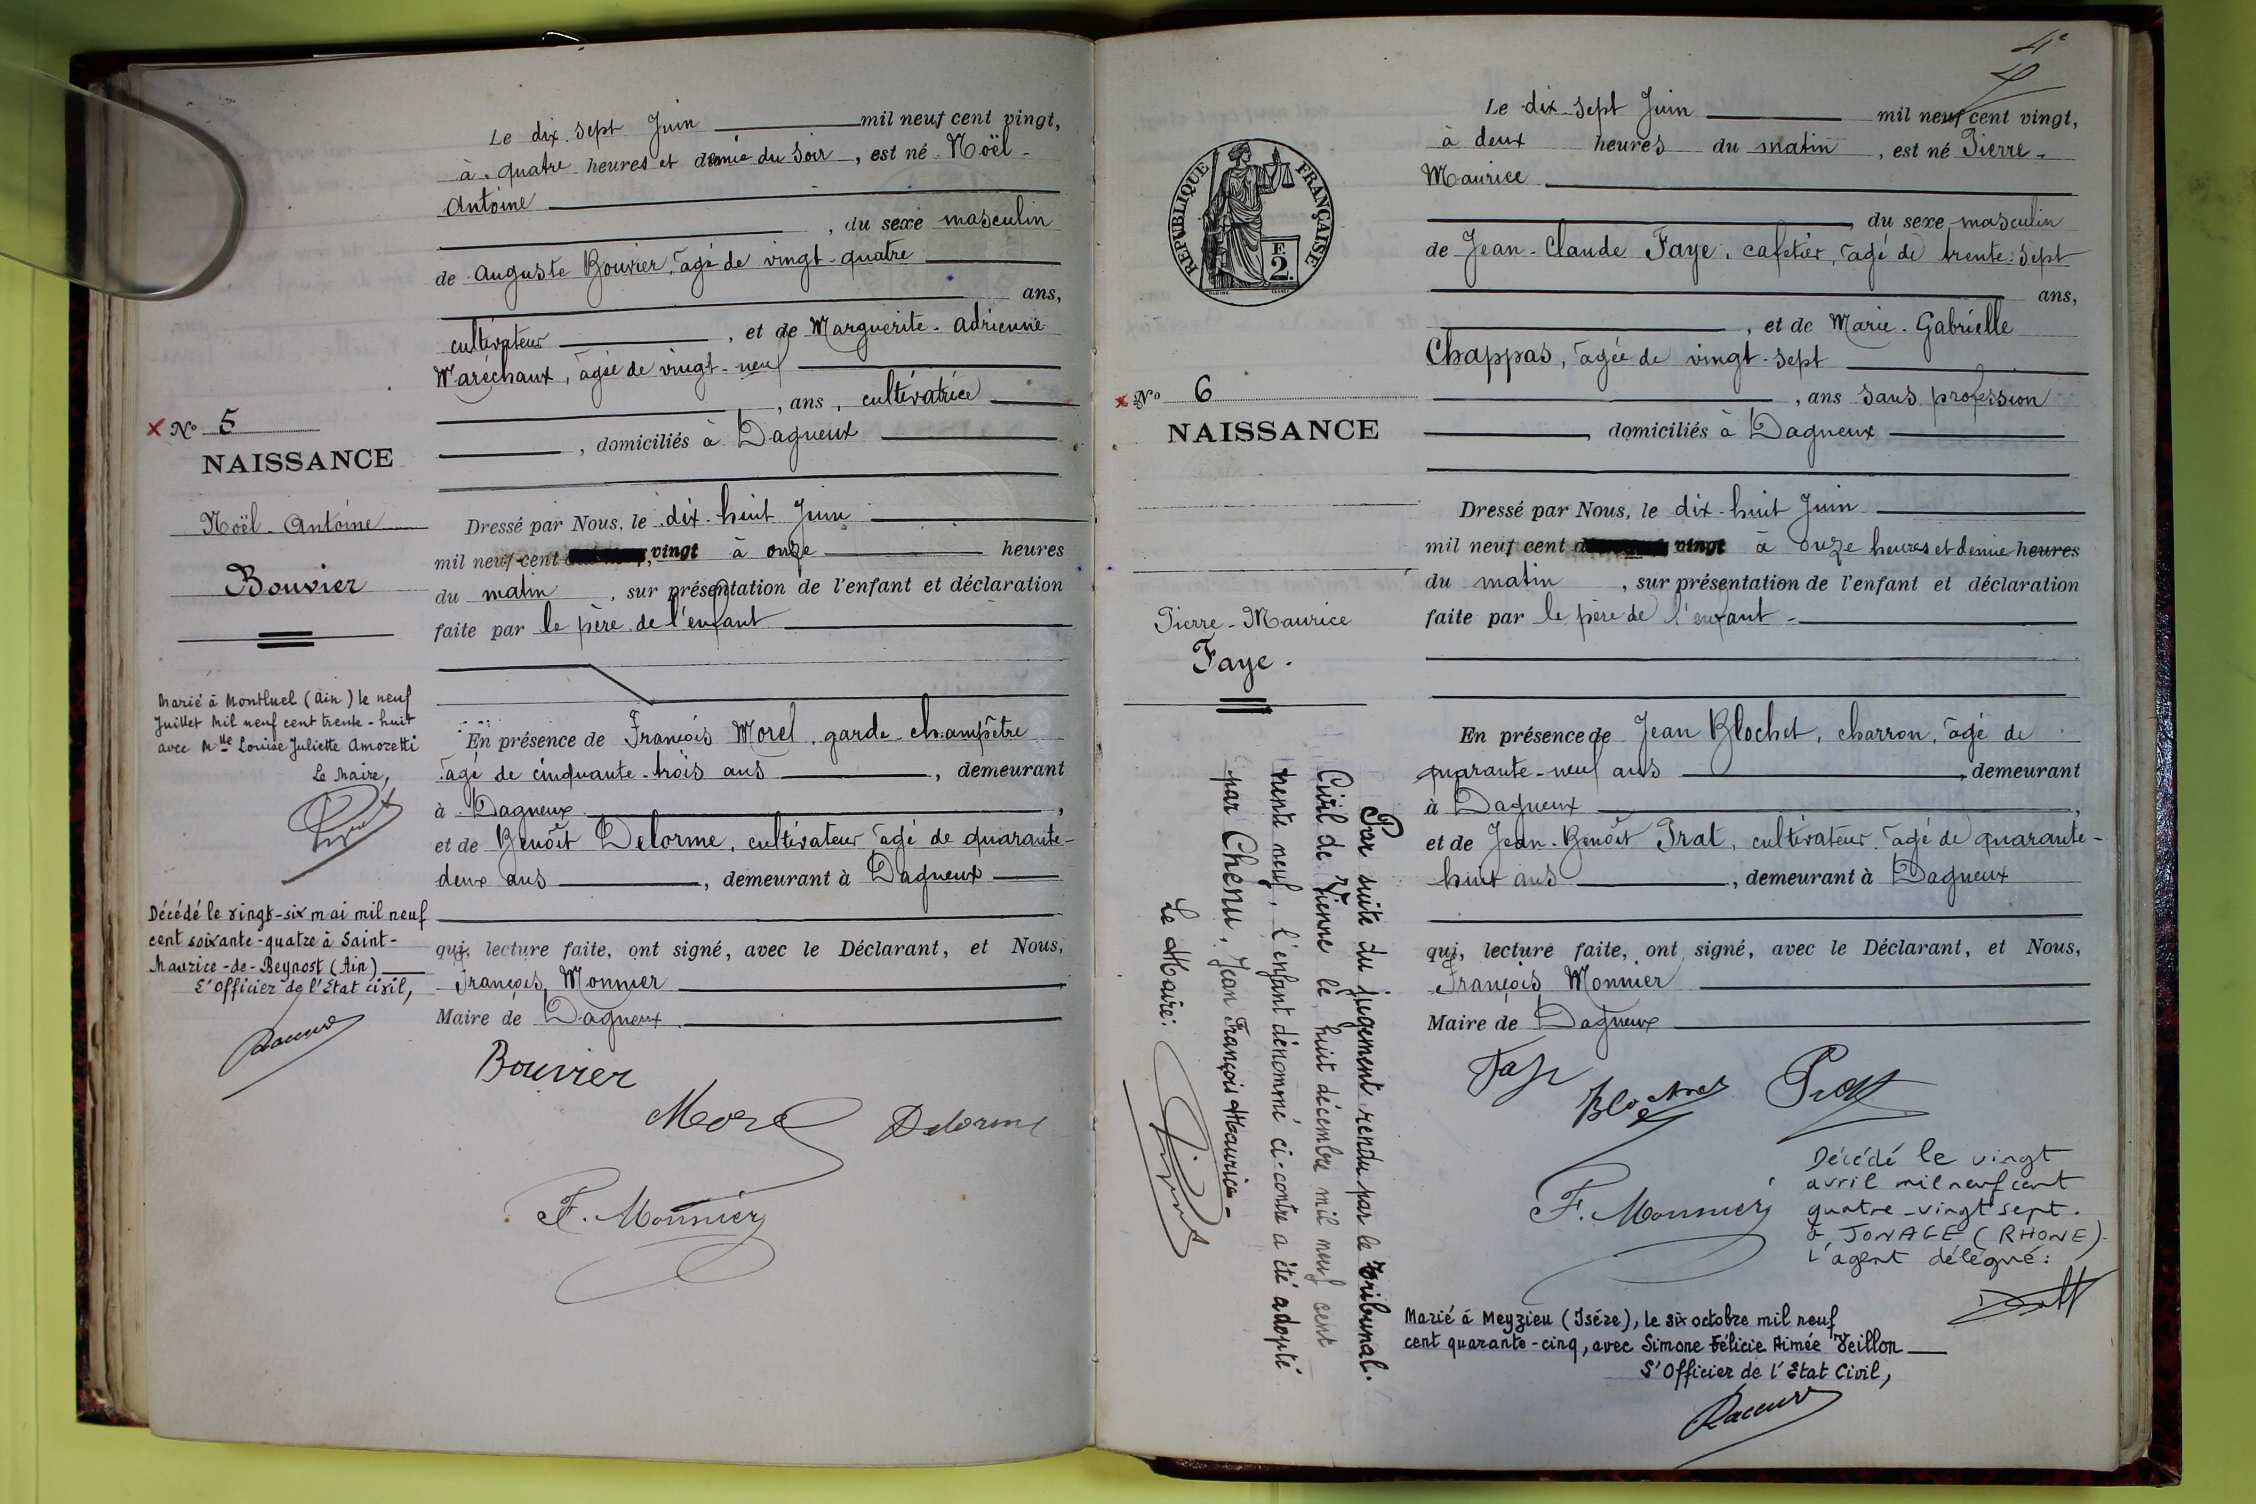 Le dix-sept Juin mil neuf cent vingt,
à quatre heures et demie du soir, est né Noël-
Antoine
, du sexe masculin
de Auguste Bouvier, âgé de vingt-quatre
ans,
cultivateur, et de Marguerite-Adrienne
Maréchaux, âgée de vingt-neuf
, ans, cultivatrice
, domiciliés à Dagneux
Dressé par Nous, le dix-huit Juin
mil neuf cent vingt à onze heures
du matin, sur présentation de l'enfant et déclaration
faite par le père de l'enfant
En présence de François Morel, garde-champêtre
âgé de cinquante-trois ans, demeurant
à Dagneux,
et de Benoît Delorme, cultivateur âgé de quarante-
deux ans, demeurant à Dagneux
qui, lecture faite, ont signé, avec le Déclarant, et Nous,
François Monnier
Maire de Dagneux
Bouvier
Morel
Delorme
F. Monnier
N° 5
NAISSANCE
Noël-Antoine
Bouvier
Marié à Montluel (Ain) le neuf
Juillet Mil neuf cent trente-huit
avec Mlle Louise Juliette Amoretti
Le Maire,
Décédé le vingt-six mai mil neuf
cent soixante-quatre à Saint-
Maurice-de-Beynost (Ain)
L'Officier de l'Etat civil,
4e
Le dix-sept Juin mil neuf cent vingt,
à deux heures du matin, est né Pierre-
Maurice
du sexe masculin
de Jean-Claude Faye, cafetier, âgé de trente-sept
ans,
, et de Marie-Gabrielle
Chappas, âgée de vingt-sept
, ans sans profession
, domiciliés à Dagneux
Dressé par Nous, le dix-huit Juin
mil neuf cent vingt à onze heures et demie heures
du matin, sur présentation de l'enfant et déclaration
faite par le père de l'enfant-
En présence de Jean Blochet, charron, âgé de
quarante-neuf ans, demeurant
à Dagneux,
et de Jean-Benoît Prat, cultivateur, âgé de quarante-
huit ans, demeurant à Dagneux
qui, lecture faite, ont signé, avec le Déclarant, et Nous,
François Monnier
Maire de Dagneux
Faye
Blochet
Prat
F. Monnier
Décédé le vingt
avril mil neuf cent
quatre-vingt sept.
à JONAGE (RHONE).
L'agent délégué:
Marié à Meyzieu (Isére), le six octobre mil neuf
cent quarante-cinq, avec Simone Félicie Aimée Veillon
L'Officier de l'Etat Civil,
RÉPUBLIQUE FRANÇAISE
F.
2.
N° 6
NAISSANCE
Pierre-Maurice
Faye.
Par suite du jugement rendu par le Tribunal.
Civil de Vienne le, huit décembre mil neuf cent
trente neuf, l'enfant dénommé ci-contre a été adopté
par Chenu, Jean François Maurice-
Le Maire: